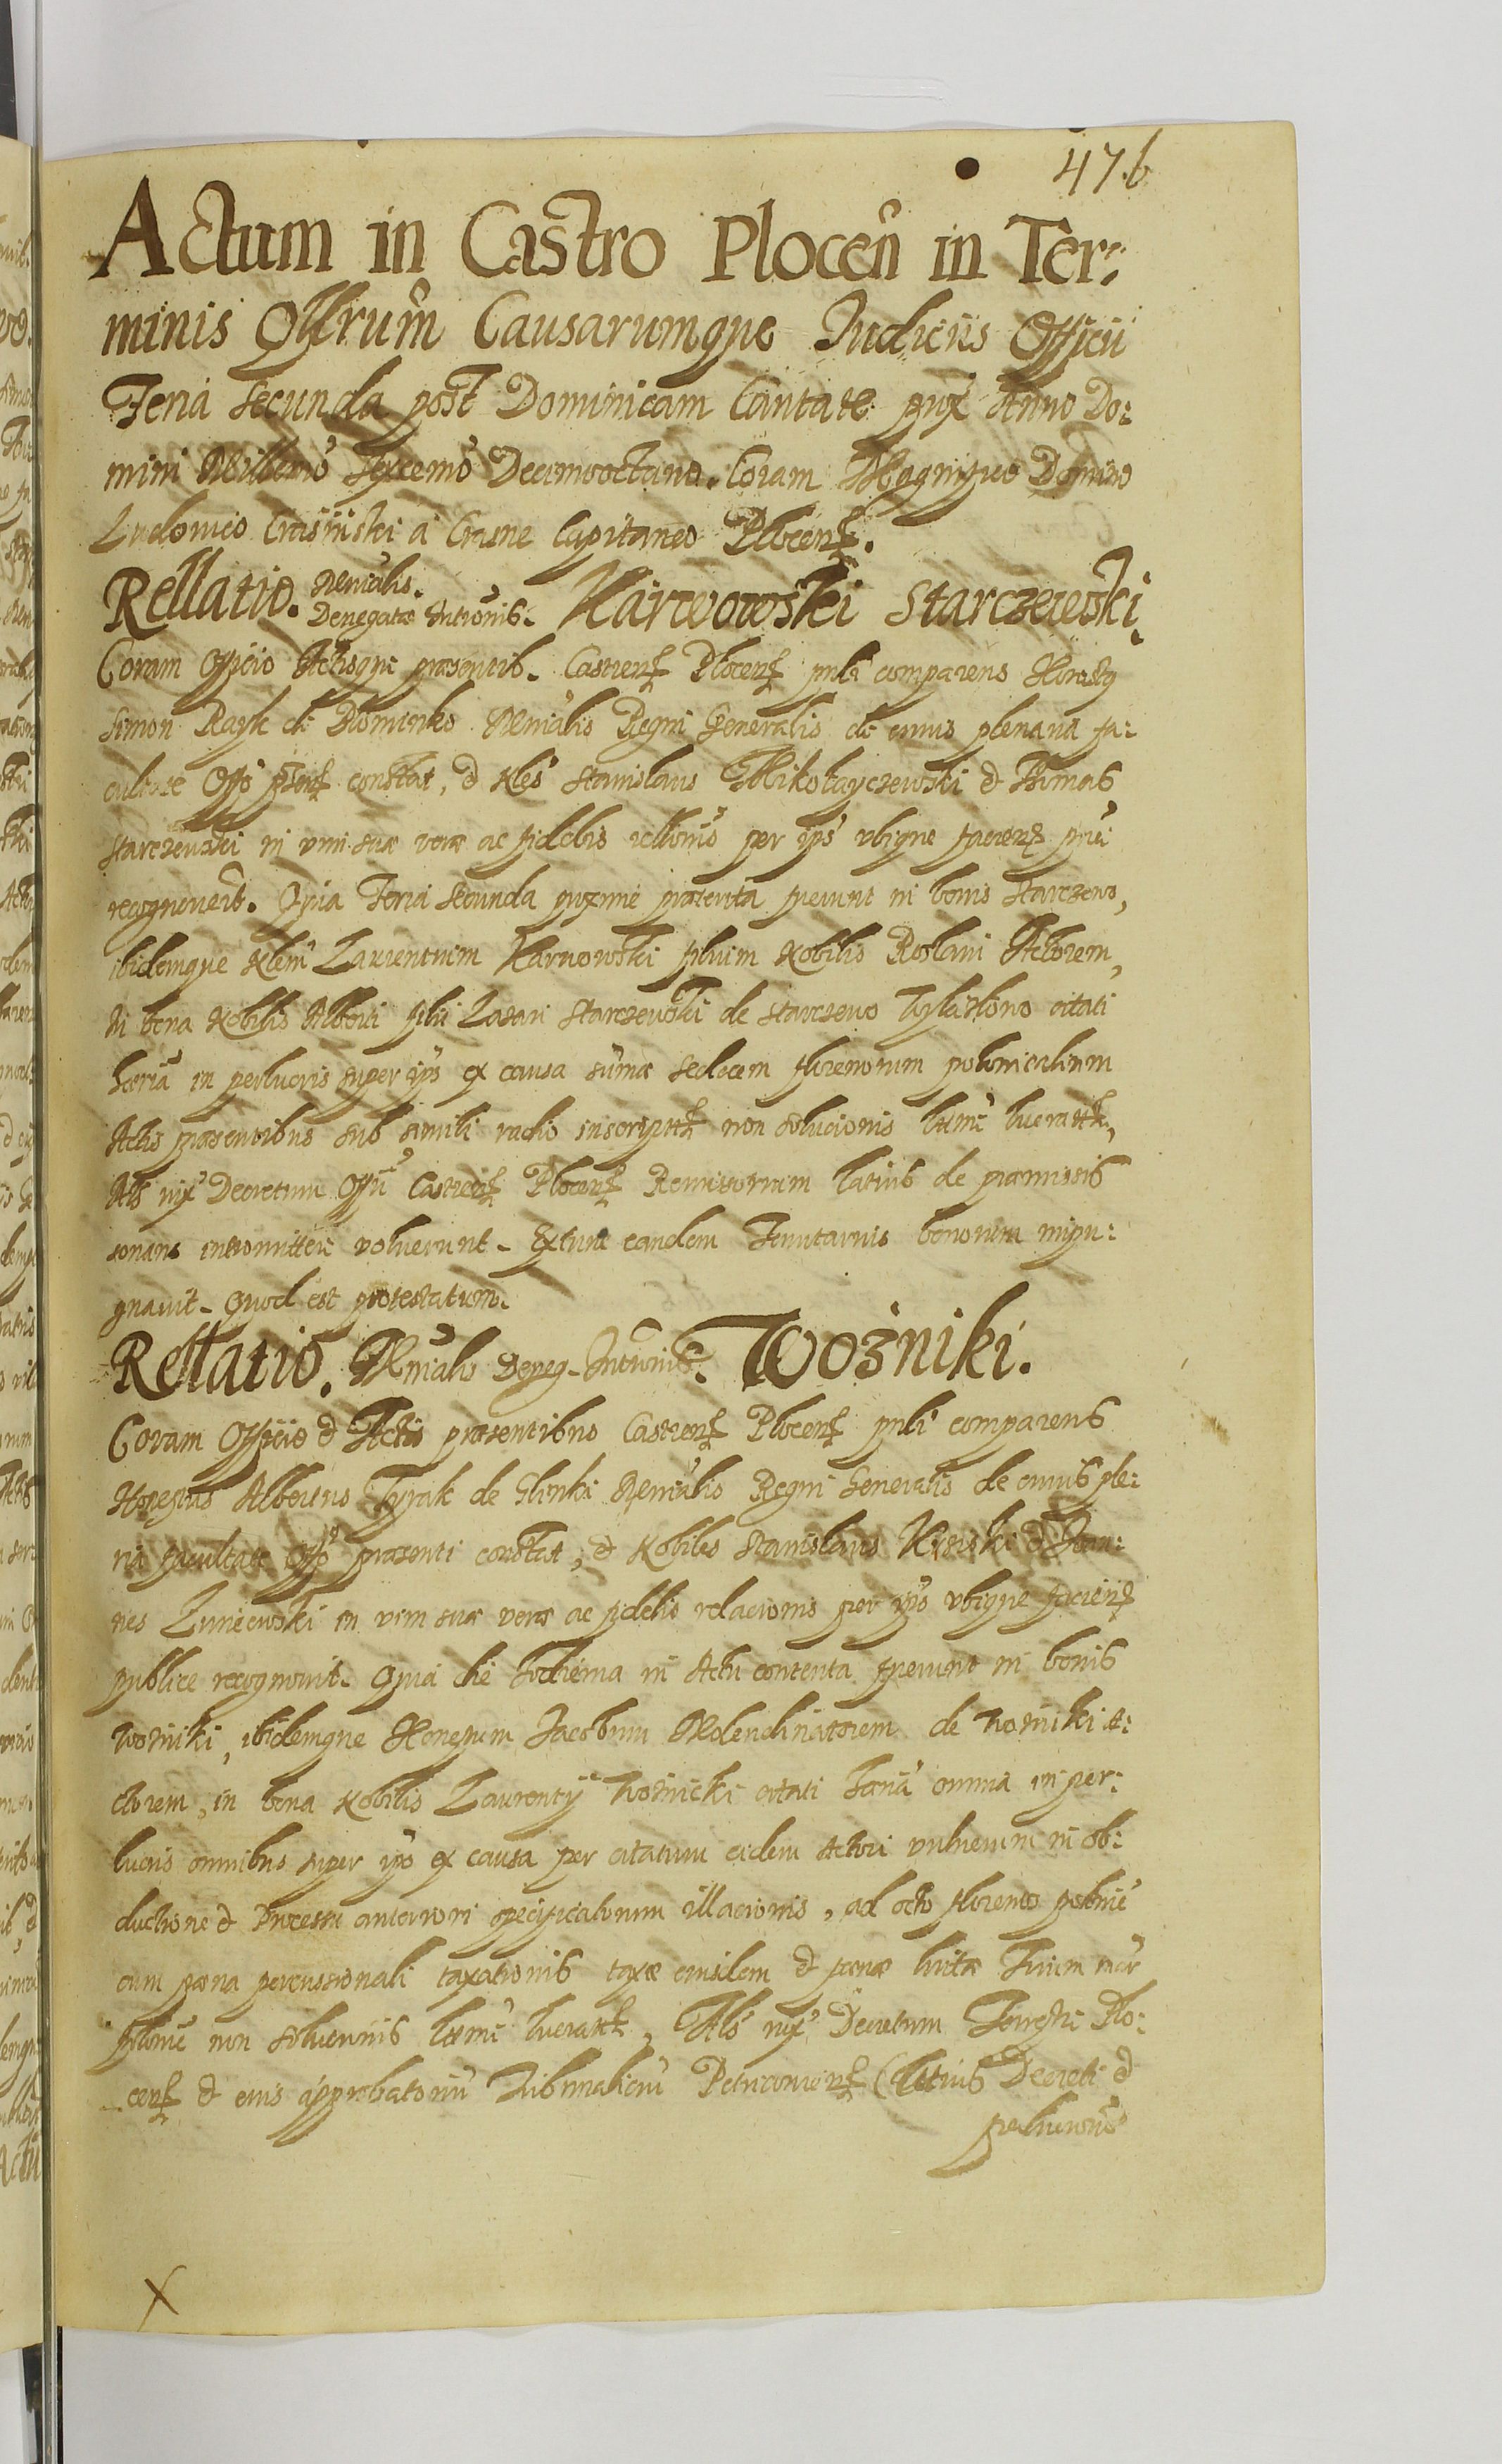 47.b
Actum in Castro Plocen̄ in Ter:
minis Qr̃rum Causarumque Judiciis Officii
Feria Secunda post Dominicam Cantate prox Anno Do:
mini Millemo Sexcemo Decimooctavo. Coram Magnifico Domino
Ludovico Crasinski a Crasne Capitaneo Plocen.
Rellatio. Mñialis. Denegatæ Intrōnis. Karwowski Starczewski.
Coram Officio Actisque præsentib. Castren Plocen publ comparens Honestq
Simon Rayk de Rominko Mñialis Regni Generalis de cuius plenaria fa:
cultate Offo pñti constat, & Nles Stanislaus Mikołayczewski & Thomas
Starczewski in vim suæ veræ ac fidelis rellonis per ips vbique facien pub
recognouert. Quia Feria Secunda proxime præterita fuerunt in bonis Starczewo,
ibidemque Nlem Laurentium Karwowski filium Nobilis Roslani Actorem,
in bona Nobilis Alberti filii Lazari Starczewski de Starczewo citati
hæria in perlucris super ips ex causa sumæ sedecem florenorum polonicalium
Actis præsentibus sub simili vadio inscriptæ non solucionis lttme lucratæ,
Als iux Decretum Offii Castren Plocen Remissorium latius de præmissis
sonans intromittere voluerunt. Extunc eandem Tenutarius bonorum inpu:
gnauit. Quod est protestatum.
Rellatio. Mñialis Deneg. Intrōnis. Woźniki.
Coram Officio & Actis præsentibus Castren Plocen publ comparens
Honestus Albertus de Glinki Mñialis Regni Generalis de cuius ple:
na facultate Offo præsenti constat, & Nobiles Stanislaus & Joan:
nes Zuniewski in vim suæ veræ ac fidelis relacionis per ips vbique facien
publice recognouit. Quia die hodierna in Actu contenta fuerunt in bonis
Woźniki, ibidemque Honestum Jacobum Molendinatorem de Woźniki A:
ctorem, in bona Nobilis Laurentii Woźnicki citati hæria omnia in per:
lucris omnibus super ipo ex causa per citatum eidem Actori vulnerum in ob:
ductione & Processu anteriori specificatorum illacionis, ad octo florenos polonic
cum pæna percussionali taxationis taxæ eiusdem & pænæ luitæ Trium mar
polonic non solucionis lttme lucratæ, Als iux Decretum Terrestre Plo:
cen & eius approbatorium Tribunalicium Petricouien (latius Decreti &
perlucrorum